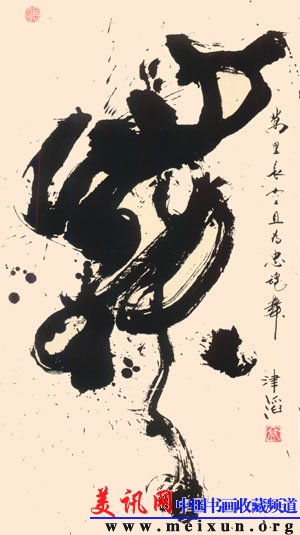 萬里长空且为忠魂舞
津滔
美讯网 中国书画收藏频道
www.meixun.org